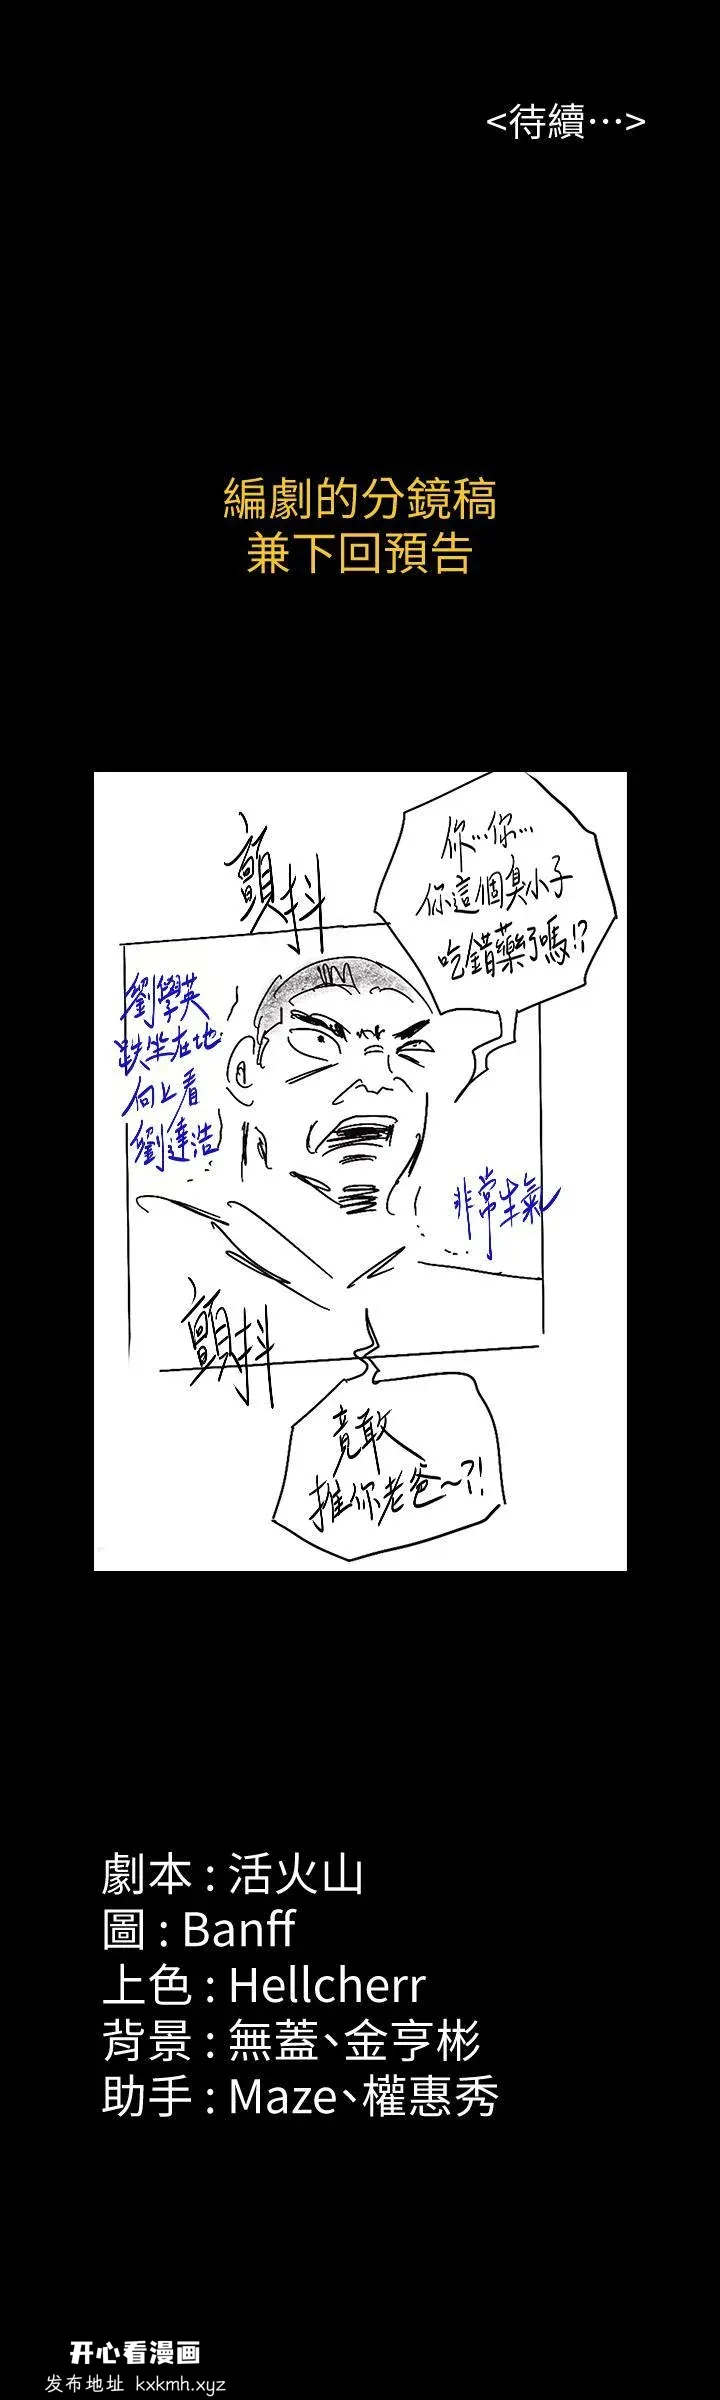 <待續…>
編劇的分鏡稿
兼下回預告
顫抖
你…你…
你這個臭小子
吃錯藥了嗎!?
劉學英
跌坐在地
向上看
劉達浩
非常生氣
顫抖
竟敢
推你老爸~?!
劇本 : 活火山
圖 : Banff
上色 : Hellcherr
背景 : 無蓋、金亨彬
助手 : Maze、權惠秀
开心看漫画
发布地址 kxkmh.xyz